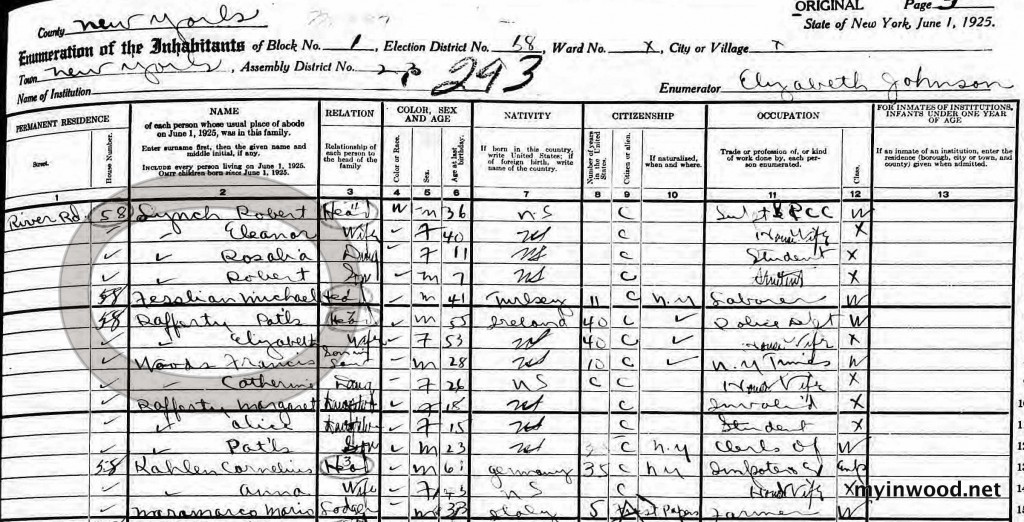 ORIGINAL Page
County New York State of New York, June 1, 1925.
Enumeration of the Inhabitants of Block No. 1, Election District No. 58, Ward No. X, City or Village
Town New York, Assembly District No. 23 243
Name of Institution Enumerator Elizabeth Johnson
PERMANENT RESIDENCE NAME RELATION COLOR, SEX AND AGE NATIVITY CITIZENSHIP OCCUPATION FOR INMATES OF INSTITUTIONS, INFANTS UNDER ONE YEAR OF AGE
Street. House Number. of each person whose usual place of abode on June 1, 1925, was in this family. Enter surname first, then the given name and middle initial, if any. INCLUDE every person living on June 1, 1925. OMIT children born since June 1, 1925. Relationship of each person to the head of the family Color or Race. Sex. Age at last birthday. If born in this country, write United States; if of foreign birth, write name of the country. Number of years in the United States. Citizen or alien. If naturalized, when and where. Trade or profession of, or kind of work done by, each person enumerated. Class. If an inmate of an institution, enter the residence (borough, city or town, and county) given when admitted.
1 2 3 4 5 6 7 8 9 10 11 12 13
River Rd. 58 Lynch Robert Head W m 36 US C W
Eleanor Wife F 40 US C House Wife X
Rosalia Daug F 11 US C Student X
Robert Son m 7 US C Student X
58 Fesslian Michael Hed m 41 Turkey 11 C N.Y Laborer W
58 Rafferty Pat'k Head m 55 Ireland 40 C Police Sgt W
Elizabeth Wife F 53 40 C House Wife X
Woods Francis m 28 US 10 C N.Y Times W
Catherine Daug F 26 US C C House Wife X
Rafferty Margaret Daughter F 18 US C Invalid X
Alice Daughter F 15 US C Student X
Pat'k Son m 23 US C N.Y Clerk Of W
58 Kahlen Cornelius Head m 61 Germany 35 C N.Y Emp
Anna Wife F US C House Wife X
Maramarco Mario Lodger m 38 Italy 5 1st Papers Farmer W
myinwood.net